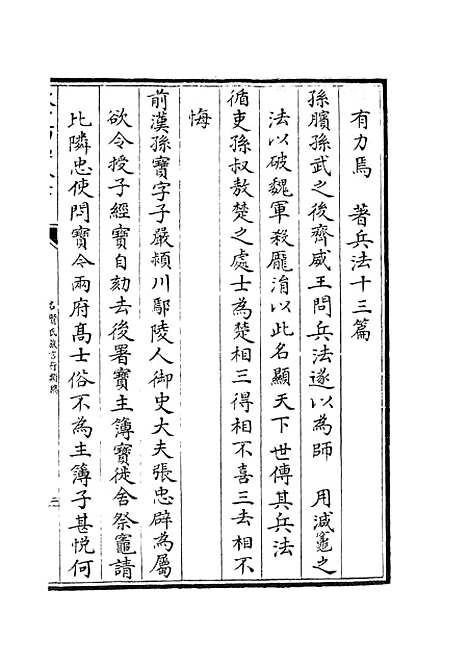 有力焉　著兵法十三篇
孫臏孫武之後齊威王問兵法遂以為師　用減竈之
法以破魏軍殺龐涓以此名顯天下世傳其兵法
循吏孫叔敖楚之處士為楚相三得相不喜三去相不
悔
前漢孫寶字子嚴頴川鄢陵人御史大夫張忠辟為屬
欲令授子經寶自劾去後署寶主簿寶徙舍祭竈請
比隣忠使問寶令兩府髙士俗不為主簿子甚悅何
名賢氏族言行類稿
三